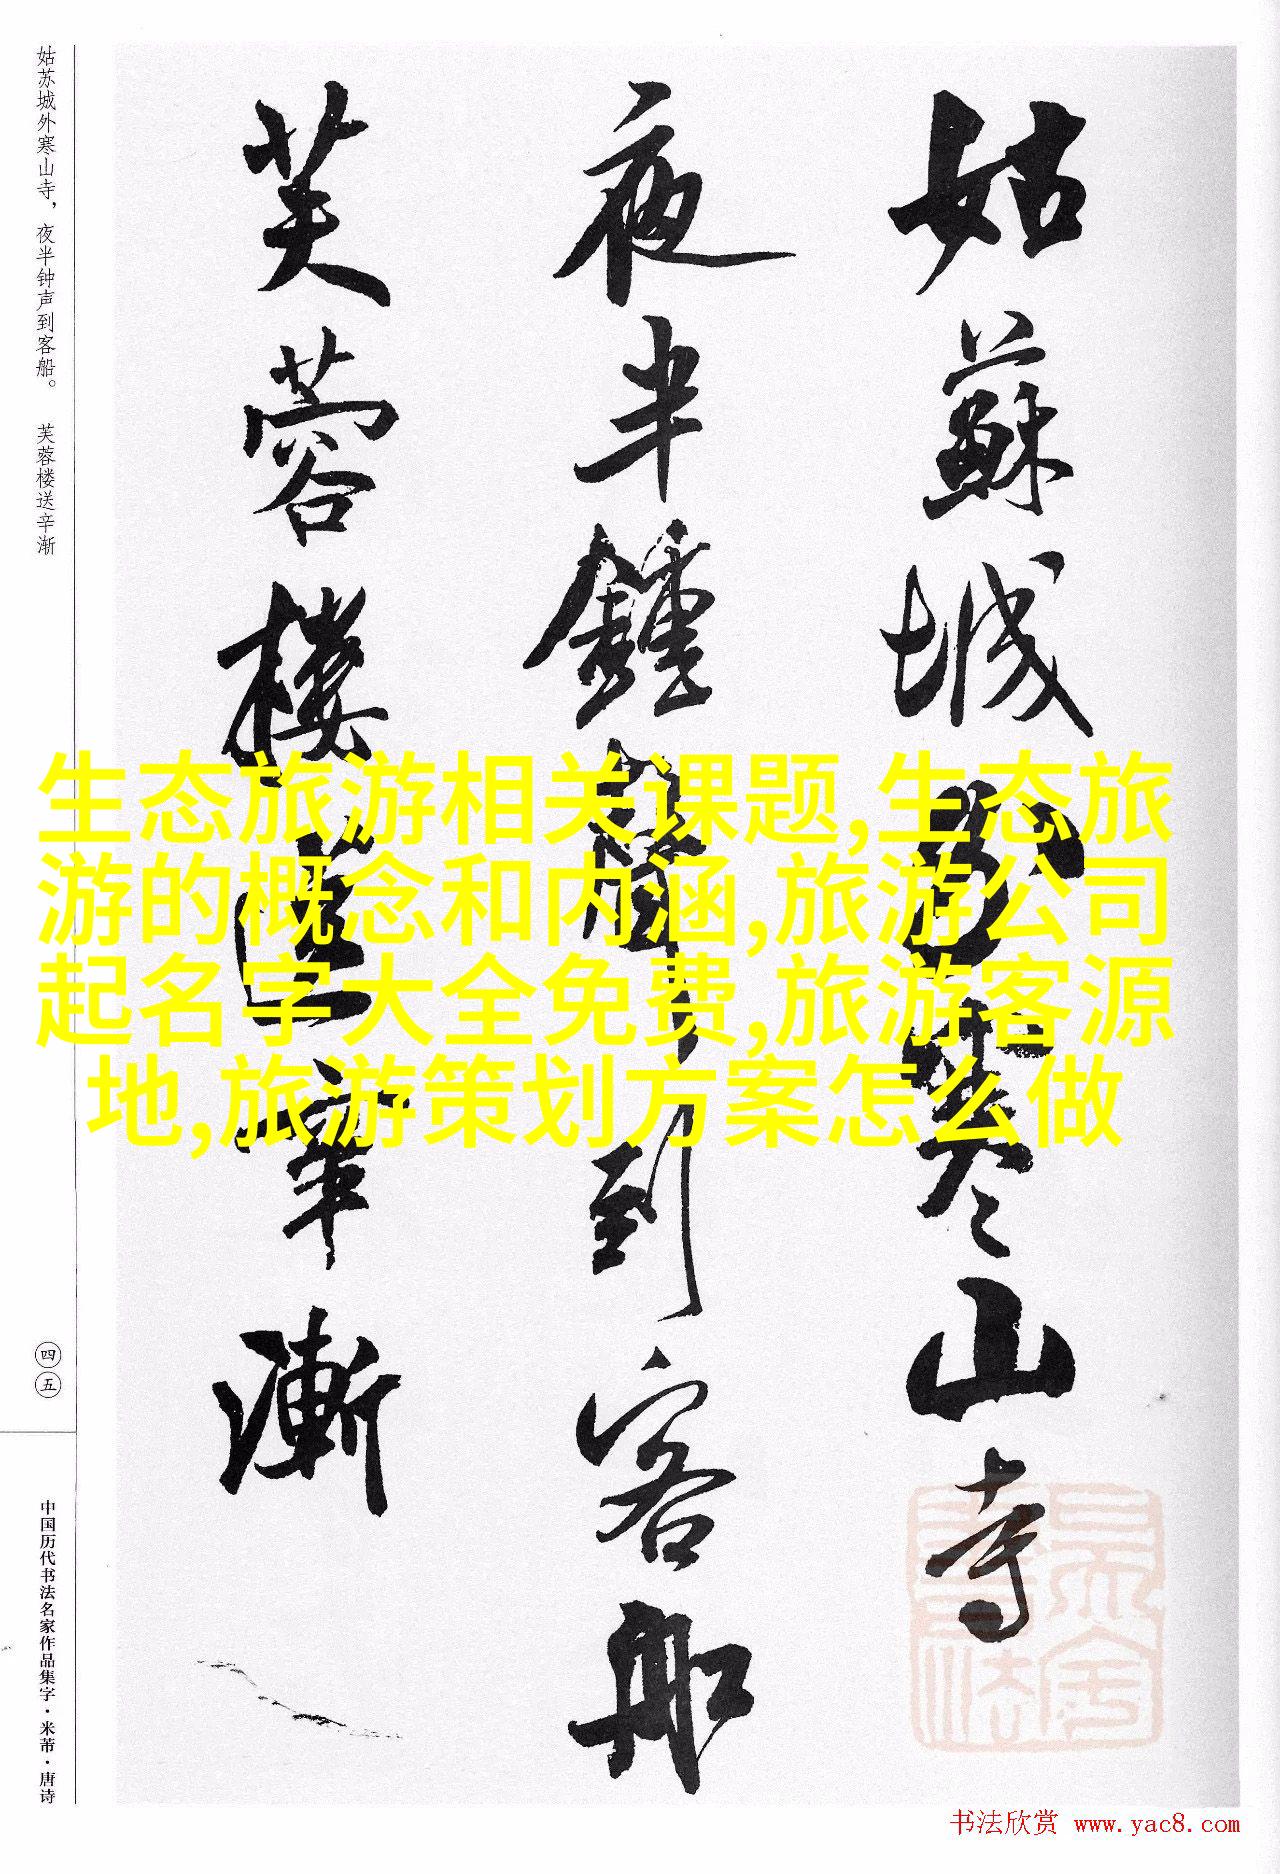 姑苏城外寒山寺，夜半钟声到客船。 芙蓉楼送辛渐
姑蘇城外寒山寺
夜半鍾聲到客船
芙蓉樓送辛漸
生态旅游相关课题,生态旅
游的概念和内涵,旅游公司
起名字大全免费,旅游客源
地,旅游策划方案怎么做
四五
中国历代书法名家作品集字·米芾·唐诗
书法欣赏 www.yac8.com